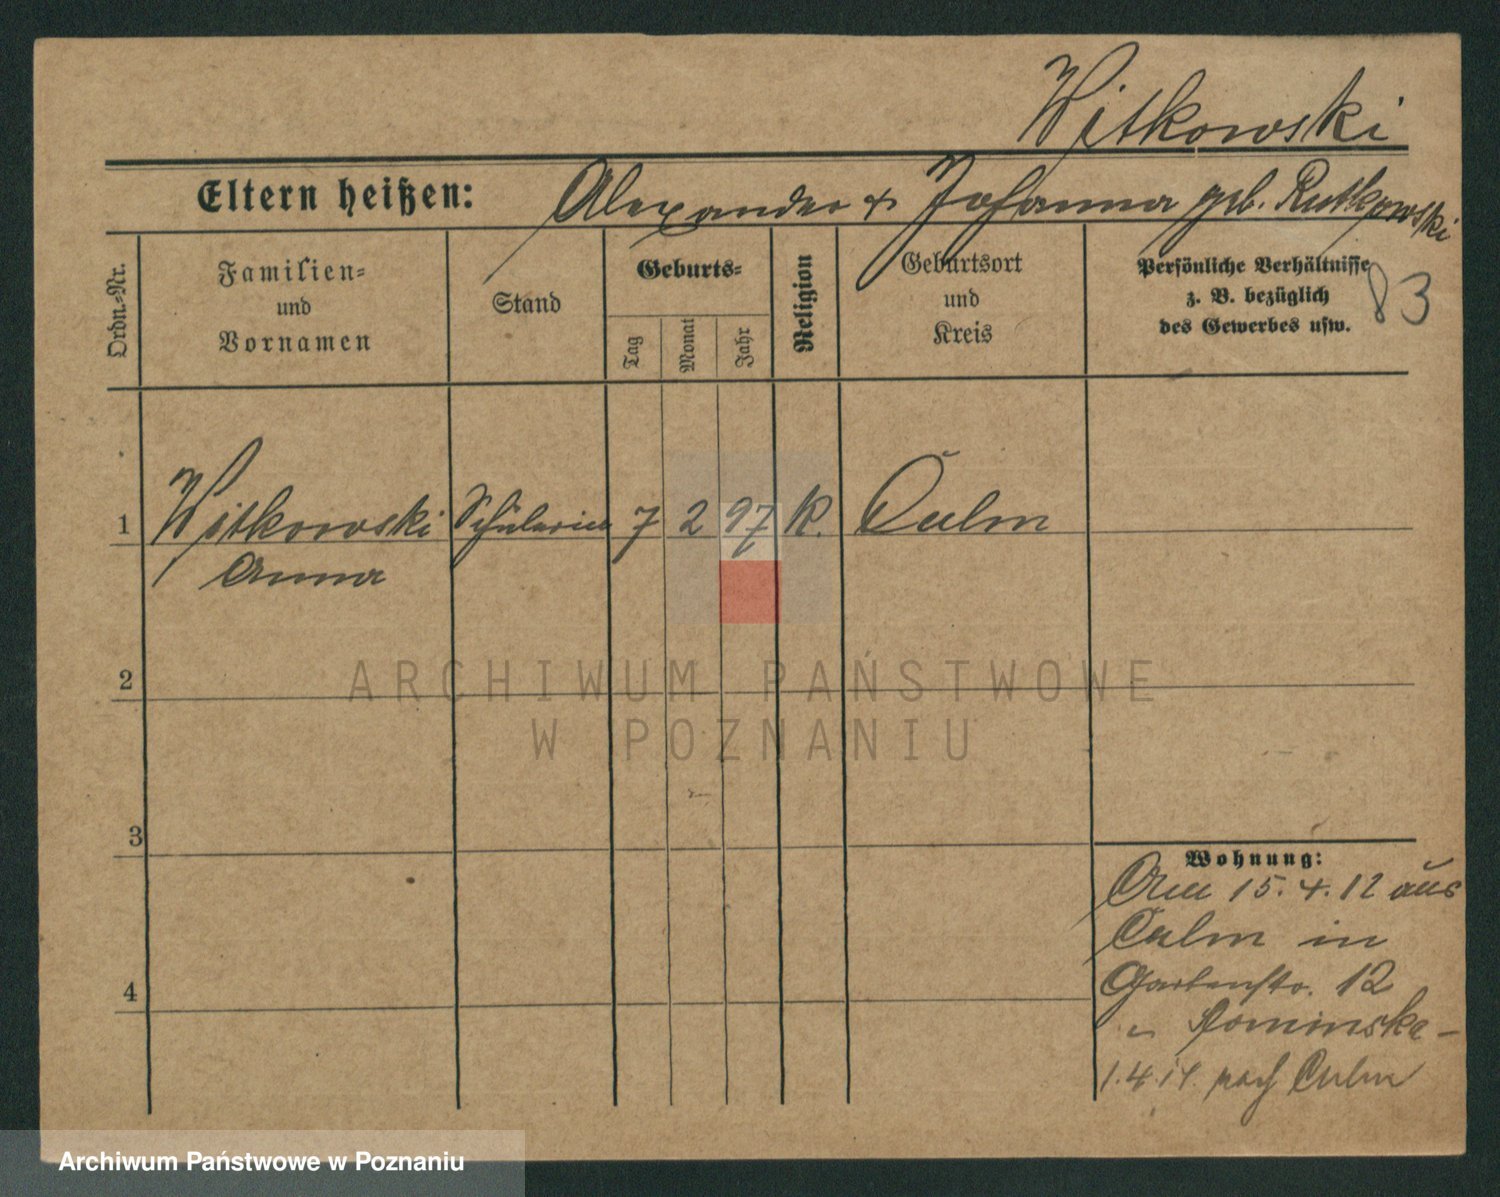 Witkowski
Eltern heißen: Alexander & Johanna geb. Rutkowski
Ordn.-Nr.
Familien-
und
Vornamen
Stand
Geburts-
Tag
Monat
Jahr
Religion
Geburtsort
und
Kreis
Persönliche Verhältnisse
z. B. bezüglich
des Gewerbes usw.
83
1 Witkowski Schülerin 7 2 97 K. Culm
Anna
2
3
4
Wohnung:
Am 15.4.12 aus
Culm in
Gartenstr. 12
" Slominska -
1.4.14. nach Culm
ARCHIWUM PAŃSTWOWE
W POZNANIU
Archiwum Państwowe w Poznaniu